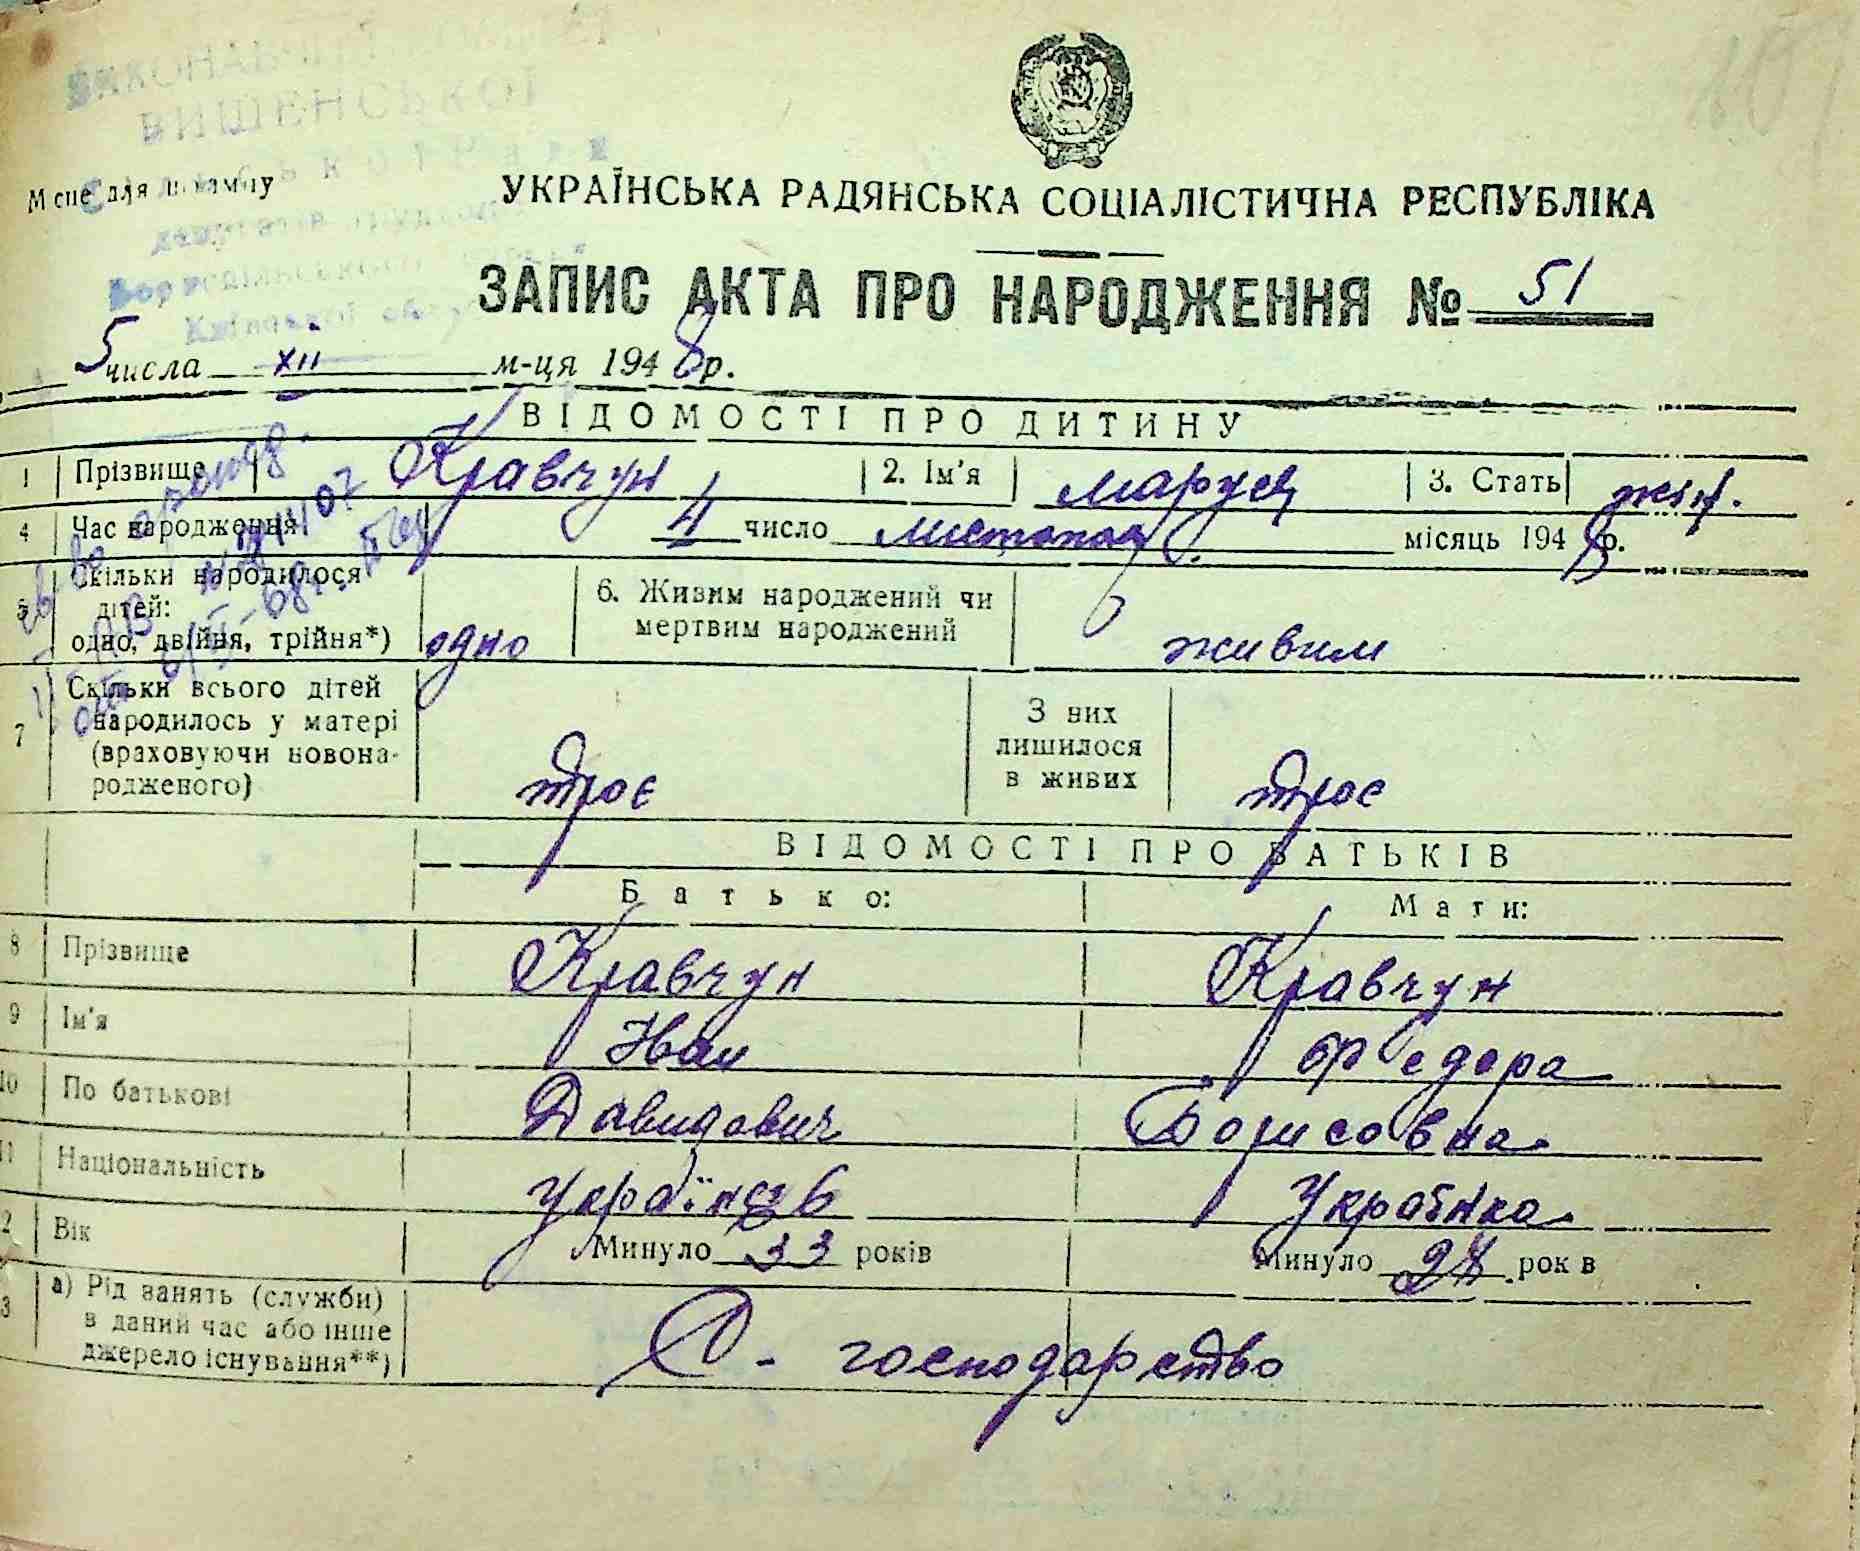 ВИКОНАВЧИЙ КОМІТЕТ
ВИШЕНСЬКОЇ
Місце для штампу
УКРАЇНСЬКА РАДЯНСЬКА СОЦІАЛІСТИЧНА РЕСПУБЛІКА
депутатів трудящих
Бориспільського району
Київської області
ЗАПИС АКТА ПРО НАРОДЖЕННЯ № 51
5 числа XII м-ця 1948 р.
ВІДОМОСТІ ПРО ДИТИНУ
1 Прізвище Кравчун 2. Ім'я Маруся 3. Стать жін.
4 Час народження 4 число листопад місяць 1948 р.
5 Скільки народилося дітей: одно, двійня, трійня*) одно 6. Живим народжений чи мертвим народжений живим
7 Скільки всього дітей народилось у матері (враховуючи новонародженого) троє З них лишилося в живих троє
ВІДОМОСТІ ПРО БАТЬКІВ
Батько: Мати:
8 Прізвище Кравчун Кравчун
9 Ім'я Іван Федора
10 По батькові Давидович Борисовна
11 Національність Українець Українка
12 Вік Минуло 33 років Минуло 28 років
13 а) Рід занять (служби) в даний час або інше джерело існування**) С-господарство